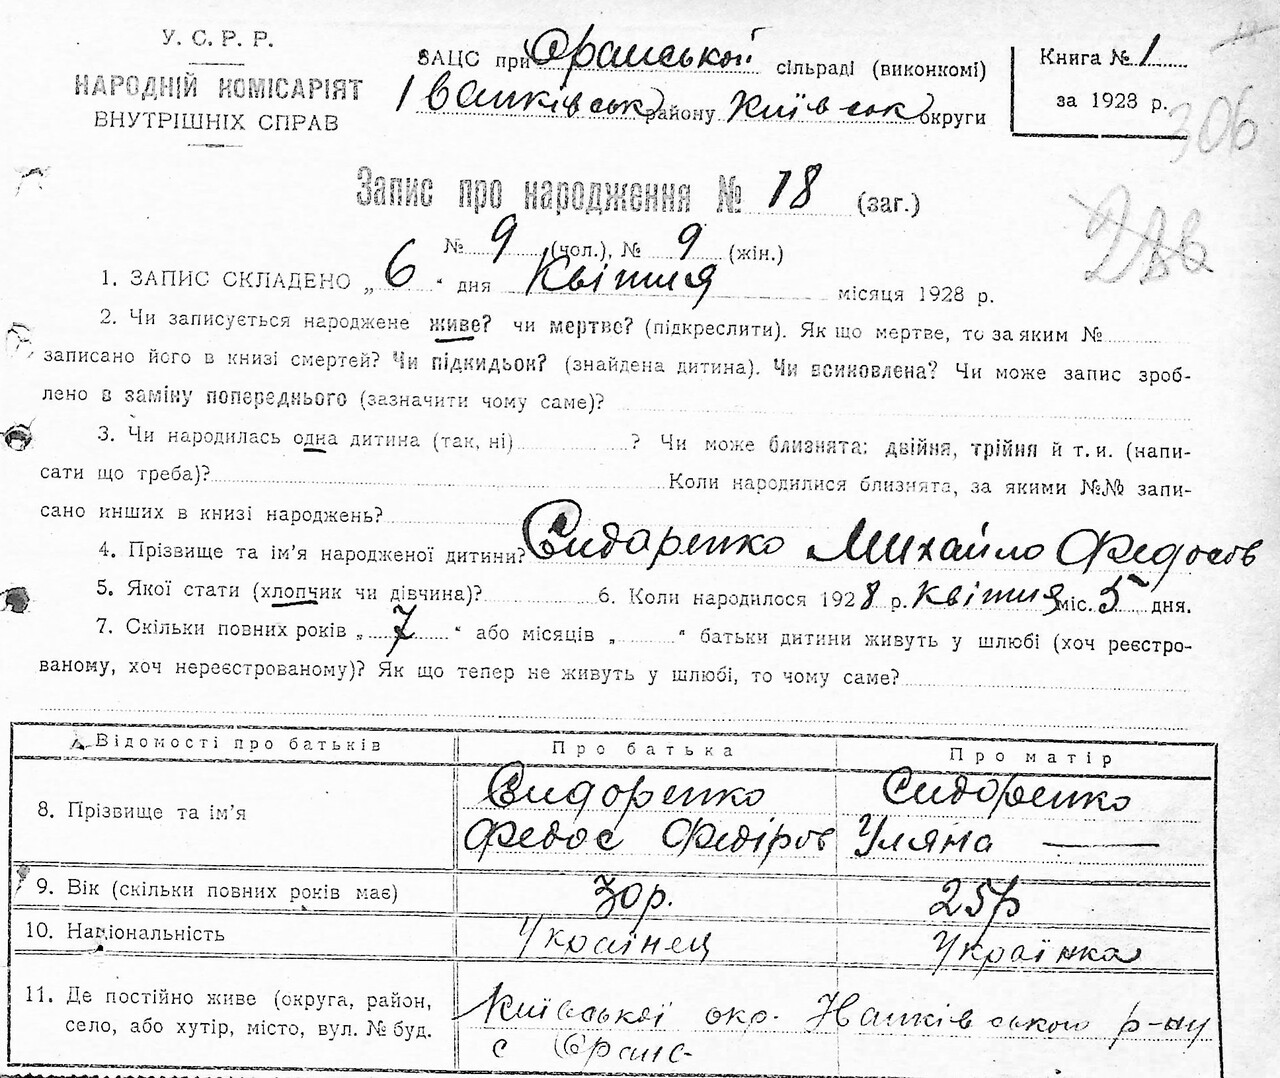 У. С. Р. Р.
НАРОДНІЙ КОМІСАРІЯТ
ВНУТРІШНІХ СПРАВ
ЗАЦС при Оранської сільраді (виконкомі)
Іванківськ району Київськ округи
Книга № 1
за 1928 р.
306
Запис про народження № 18 (заг.)
№ 9 (чол.), № 9 (жін.)
1. ЗАПИС СКЛАДЕНО „ 6 " дня Квітня місяця 1928 р.
2. Чи записується народжене живе? чи мертве? (підкреслити). Як що мертве, то за яким №
записано його в книзі смертей? Чи підкидьок? (знайдена дитина). Чи всиновлена? Чи може запис зроб-
лено в заміну попереднього (зазначити чому саме)?
3. Чи народилась одна дитина (так, ні) ? Чи може близнята: двійня, трійня й т. и. (напи-
сати що треба)? Коли народилися близнята, за якими №№ запи-
сано инших в книзі народжень?
4. Прізвище та ім'я народженої дитини? Сидаренко Михайло Федосов
5. Якої стати (хлопчик чи дівчина)? 6. Коли народилося 1928 р. Квітня міс. 5 дня.
7. Скільки повних років „ 7 " або місяців „ " батьки дитини живуть у шлюбі (хоч реєстро-
ваному, хоч нереєстрованому)? Як що тепер не живуть у шлюбі, то чому саме?
Відомості про батьків Про батька Про матір
8. Прізвище та ім'я Сидоренко Федос Федіров Сидоренко Уляна —
9. Вік (скільки повних років має) 30 р. 25 р
10. Національність Українец Українка
11. Де постійно живе (округа, район,
село, або хутір, місто, вул. № буд.
Київської окр. Іванківського р-ну
с Оране